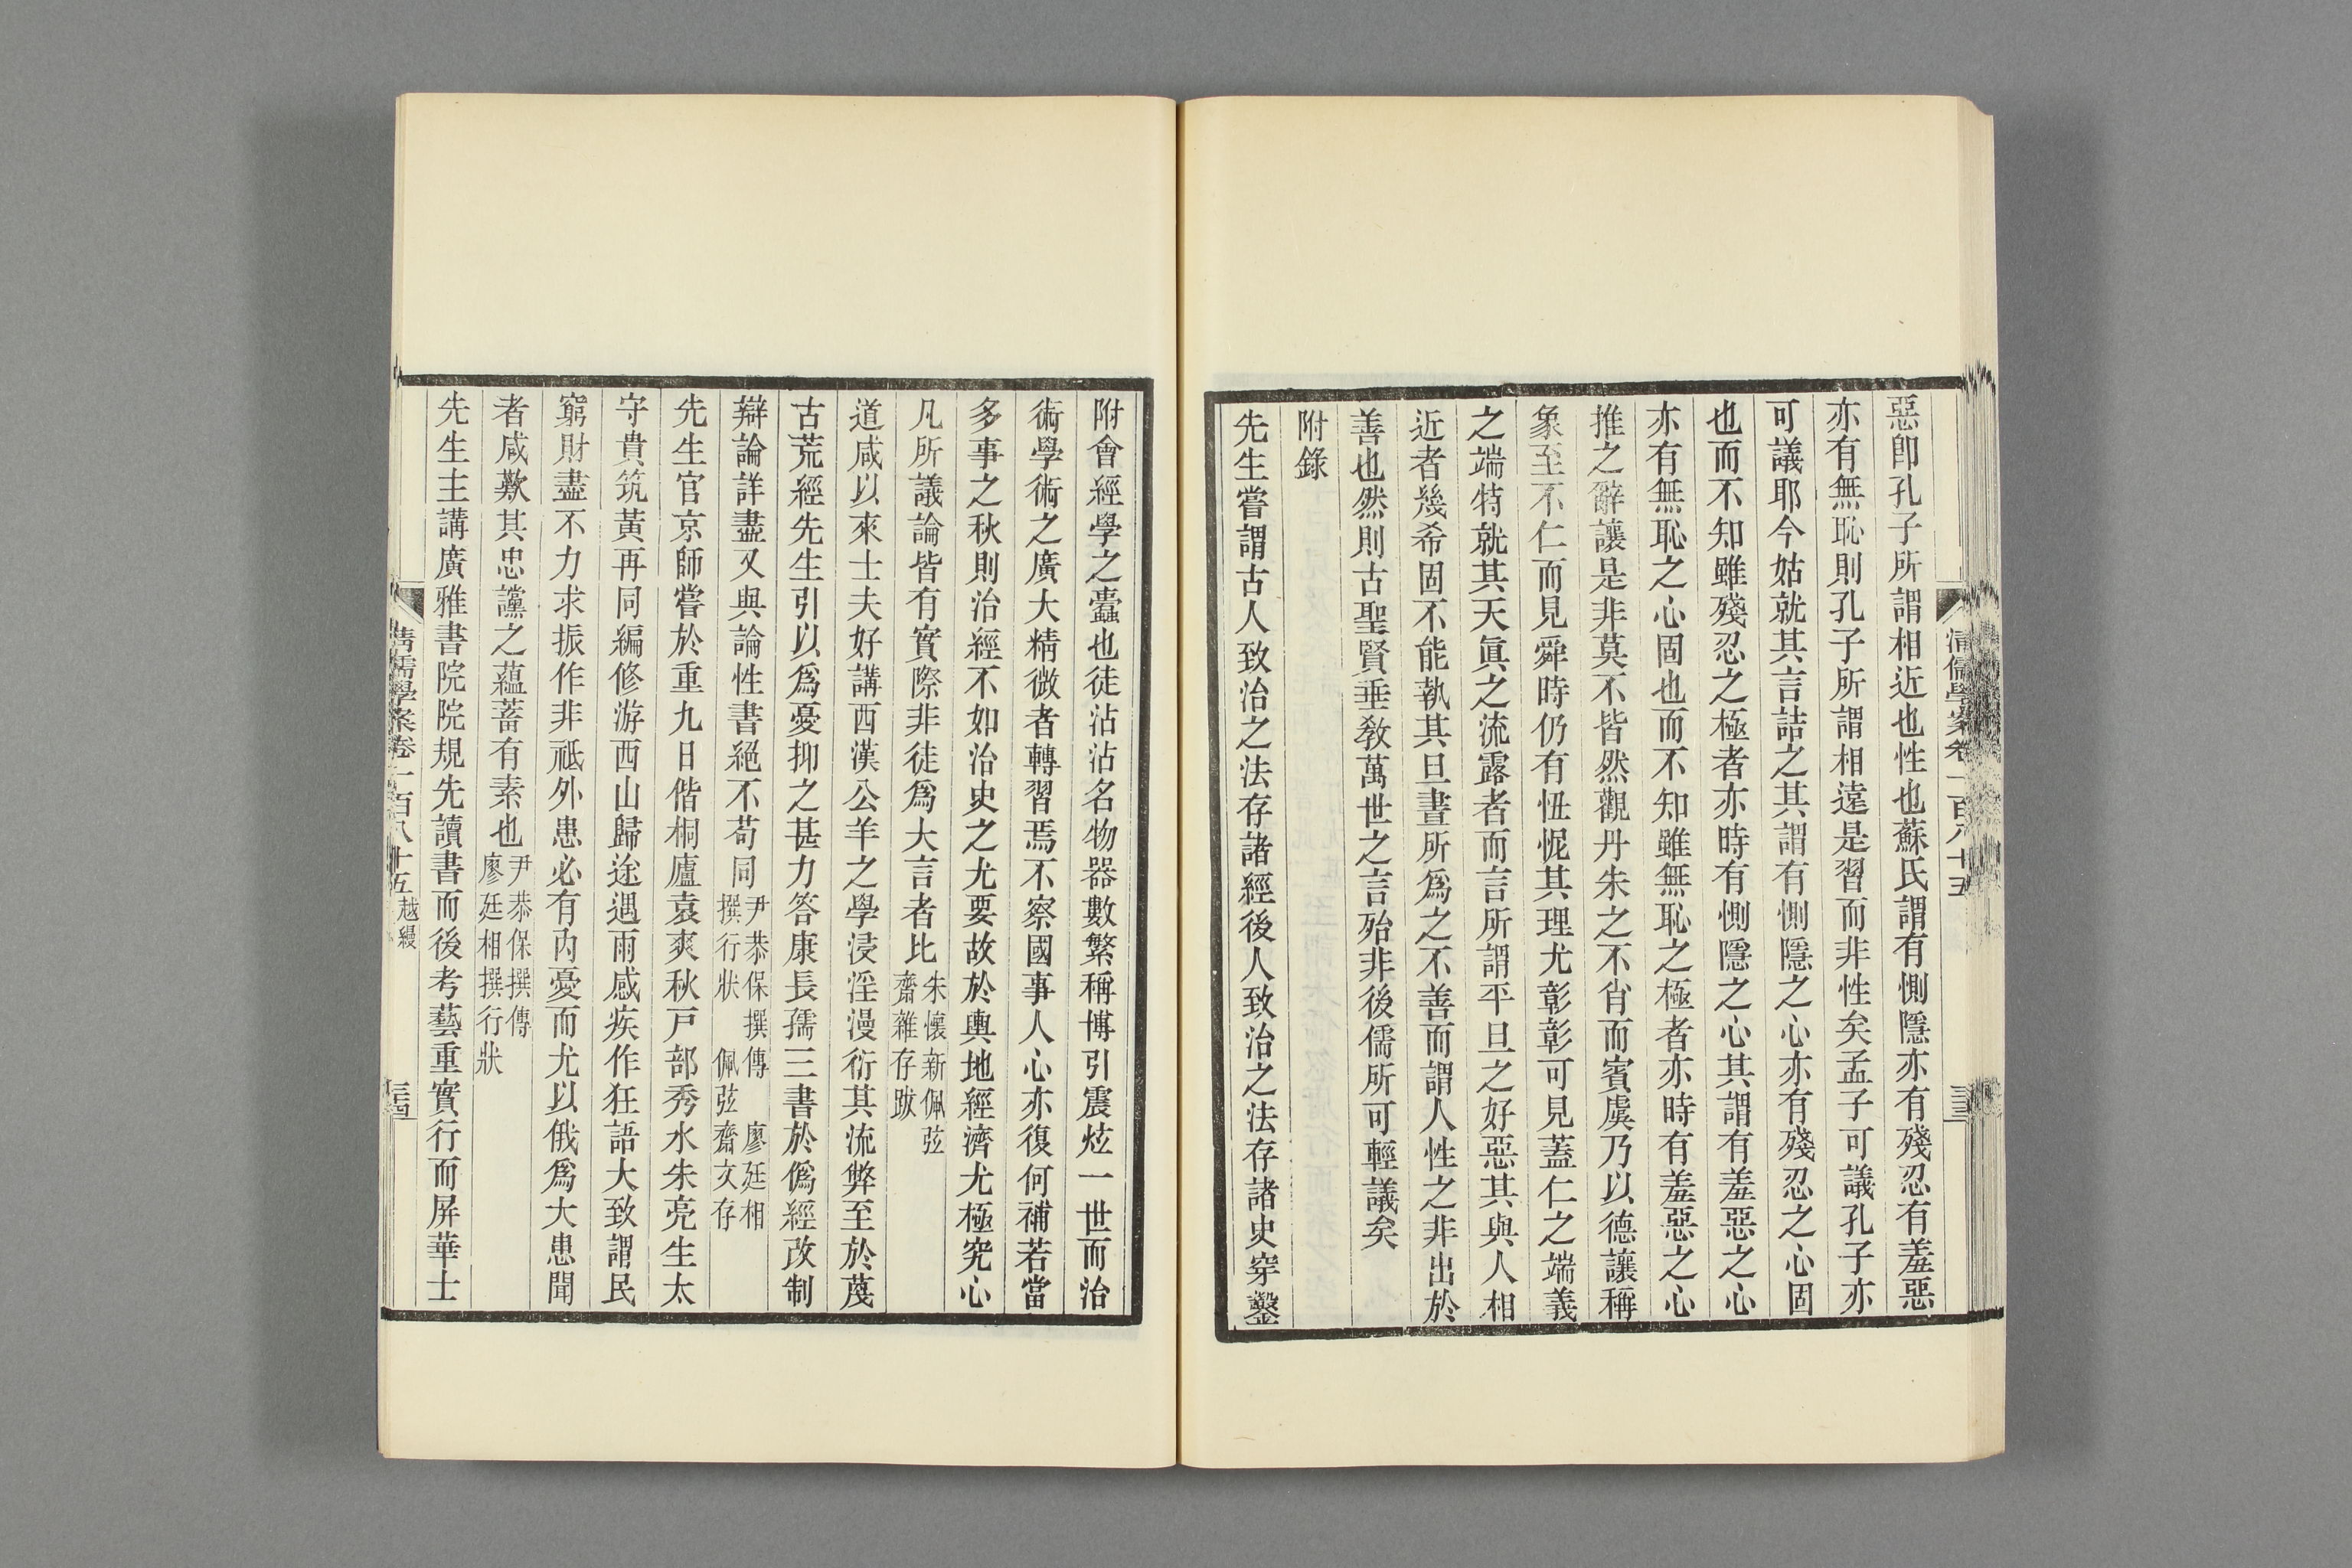 惡卽孔子所謂相近也性也蘇氏謂有惻隱亦有殘忍有羞惡
亦有無恥則孔子所謂相遠是習而非性矣孟子可議孔子亦
可議耶今姑就其言詰之其謂有惻隱之心亦有殘忍之心固
也而不知雖殘忍之極者亦時有惻隱之心其謂有羞惡之心
亦有無恥之心固也而不知雖無恥之極者亦時有羞惡之心
推之辭讓是非莫不皆然觀丹朱之不肖而賓虞乃以德讓稱
象至不仁而見舜時仍有忸怩其理尤彰彰可見蓋仁之端義
之端特就其天眞之流露者而言所謂平旦之好惡其與人相
近者幾希固不能執其旦晝所爲之不善而謂人性之非出於
善也然則古聖賢垂敎萬世之言殆非後儒所可輕議矣
附錄
先生嘗謂古人致治之法存諸經後人致治之法存諸史穿鑿
清儒學案卷一百八十五
三三
附會經學之蠹也徒沾沾名物器數繁稱博引震炫一世而治
術學術之廣大精微者轉習焉不察國事人心亦復何補若當
多事之秋則治經不如治史之尤要故於輿地經濟尤極究心
凡所議論皆有實際非徒爲大言者比朱懷新佩弦齋雜存跋
道咸以來士夫好講西漢公羊之學浸淫漫衍其流弊至於蔑
古荒經先生引以爲憂抑之甚力答康長孺三書於僞經改制
辯論詳盡又與論性書絕不苟同尹恭保撰傳 廖廷相撰行狀 佩弦齋文存
先生官京師嘗於重九日偕桐廬袁爽秋戸部秀水朱亮生太
守貴筑黃再同編修游西山歸途遇雨感疾作狂語大致謂民
窮財盡不力求振作非祗外患必有內憂而尤以俄爲大患聞
者咸歎其忠讜之蘊蓄有素也尹恭保撰傳廖廷相撰行狀
先生主講廣雅書院院規先讀書而後考藝重實行而屏華士
清儒學案卷一百八十五 越縵
三四